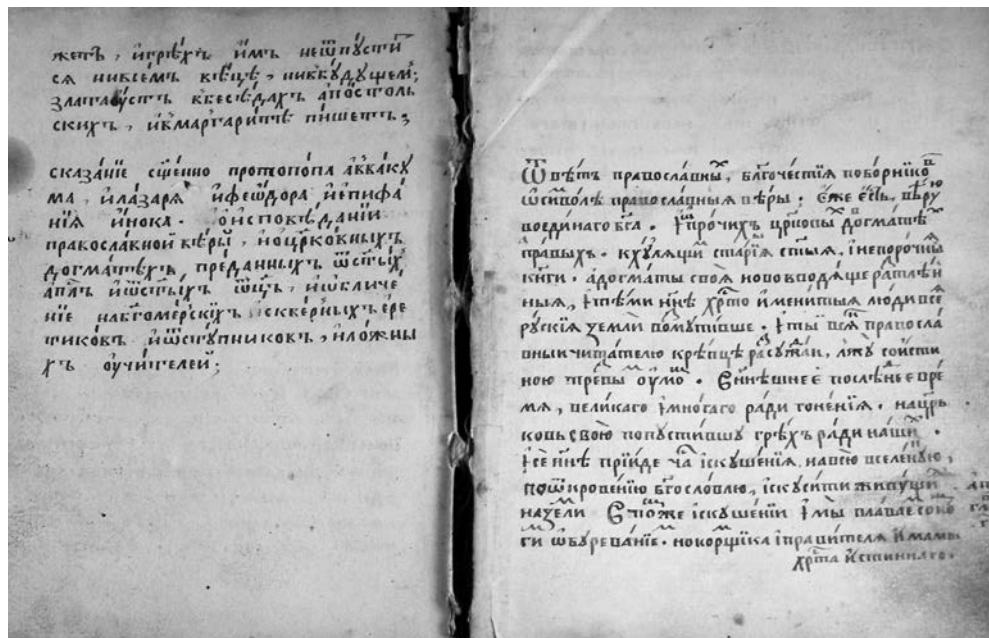 жетъ, игрѣхъ имъ неѿпусти
ся нивсемъ вѣцѣ, нивбудущемъ;
златаустъ вбесѣдахъ апостоль
скихъ, ивмаргаритѣ пишетъ;
сказанїе сщенно протопопа авваку
ма, илазаря ифеѡдора иепифа
нїя инока. оисповѣданїи
православной вѣры, ноцрковныхъ
догматѣхъ, преданныхъ ѿстыхъ
аплъ иѿстыхъ ѡцъ, иѡбличе
нїе набгомерскїхъ искверныхъ ере
тиковъ иѿступниковъ, иложны
хъ оучителей;
Ѿвѣтъ православны, благочестїя поборникѡ
ѡсимволѣ православныя вѣры. еже есь, вѣрую
воединаго бга. іпрочихъ црковы догматѣ
правыхъ. кхулящи старїя стыя, інепорочныя
книги. адогматы своя нововводяще
ныя, ітѣми ннѣ хрсто именитыя люди все
рускїя земли помутивше. іты вся правосла
вныи читателю крѣпцѣ расуждаи, лжу соисти
ною трезвы оумо. Еннѣшнее послѣнее вре
мя, великаго імногаго ради гоненїя. нацрь
ковь свою попустившу грѣхъ ради нашихъ.
ісе ннѣ прїиде ча іскушенїя навсю вселеную,
поѿкровенїю бгословлю, іскусити живущи
наземли Етоже іскушенїи імы плаваем
ги ѡбуреванїе. нокормщика іправителя имамы
хрста истиннаго.